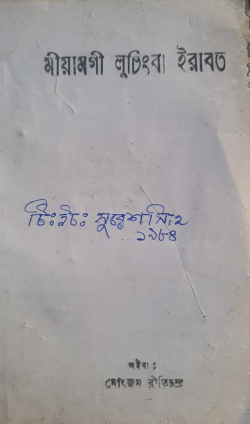 মীয়ামগী লুচিংবা ইরাবত
চিঃ ইচঃ সুরেশ সিংহ
১৯৮৪
অইবা :
থোংজম রীতিচন্দ্র